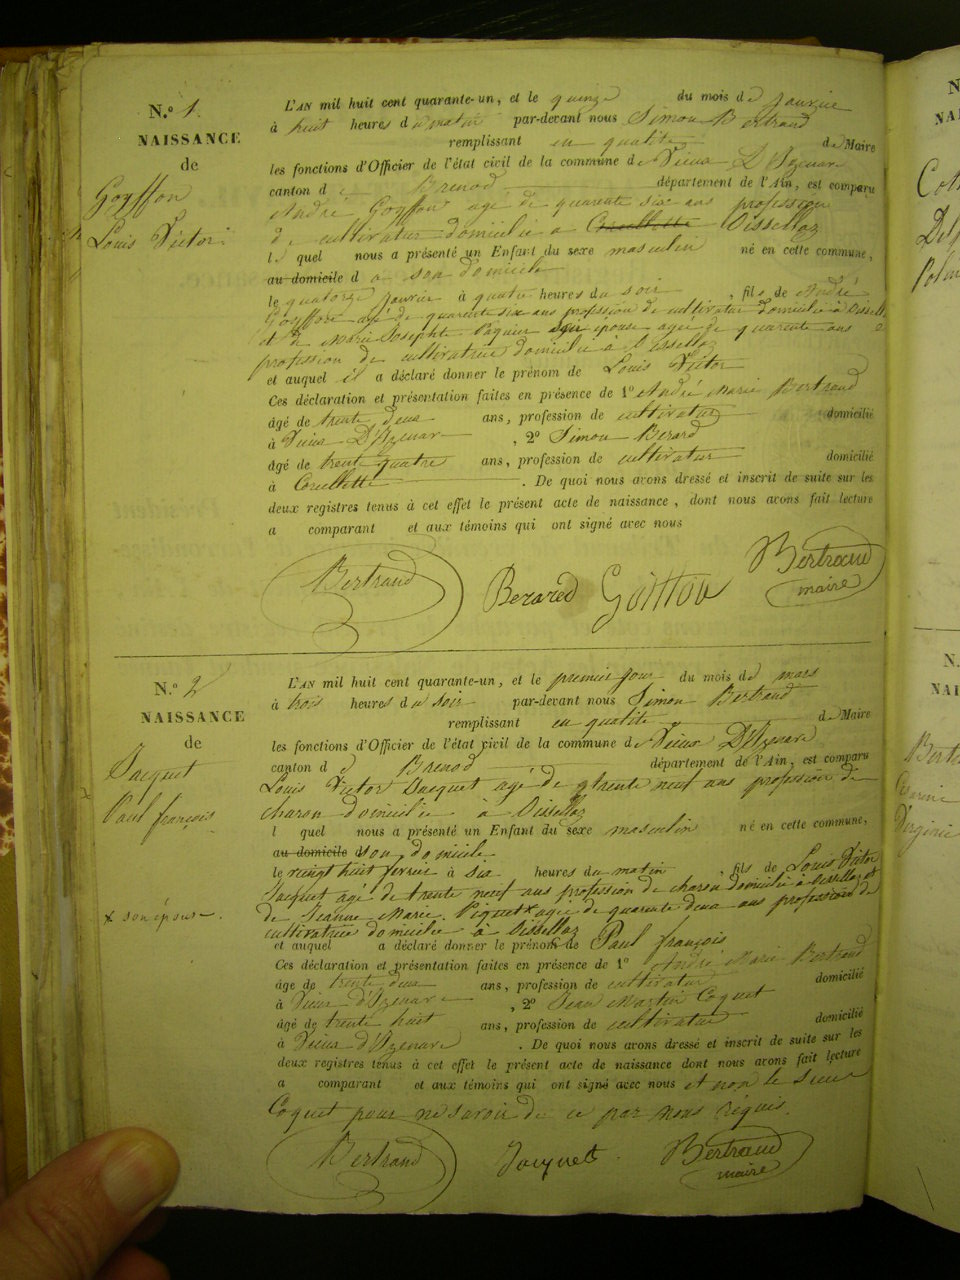 N.º 1.
NAISSANCE
de
Goyffon
Louis Victor
L'AN mil huit cent quarante-un, et le quinze du mois de Janvier
à huit heures du matin par-devant nous Simon Bertrand
remplissant en qualité de Maire
les fonctions d'Officier de l'état civil de la commune de Vieux D'Izenave
canton de Brenod département de l'Ain, est comparu
André Goyffon agé de quarante six ans profession
de cultivateur domicilié a Oisselaz
lequel nous a présenté un Enfant du sexe masculin né en cette commune,
au domicile d a son domicile
le quatorze janvier à quatre heures du soir, fils de André
Goyffon agé de quarante six ans profession de cultivateur domicilié à Oissellaz
et de Marie Josephte Paquier son épouse agée de quarante ans
profession de cultivatrice domicilié à Oissellaz
et auquel il a déclaré donner le prénom de Louis Victor
Ces déclaration et présentation faites en présence de 1º André Marie Bertrand
âgé de trente deux ans, profession de cultivateur domicilié
à Vieux D'Izenave, 2º Simon Berard
âgé de trente quatre ans, profession de cultivateur domicilié
à Corcellette. De quoi nous avons dressé et inscrit de suite sur les
deux registres tenus à cet effet le présent acte de naissance, dont nous avons fait lecture
a comparant et aux témoins qui ont signé avec nous
Bertrand Berared Goiffon Bertrand
maire
N.º 2
NAISSANCE
de
Jacquet
Paul françois
x son épouse
L'AN mil huit cent quarante-un, et le premier jour du mois de mars
à trois heures du soir par-devant nous Simon Bertrand
remplissant en qualité de Maire
les fonctions d'Officier de l'état civil de la commune de Vieux D'Izenave
canton de Brenod département de l'Ain, est comparu
Louis Victor Jacquet agé de trente neuf ans profession de
charon domicilié à Oissellaz
l quel nous a présenté un Enfant du sexe masculin né en cette commune,
au domicile son domicile
le vingt huit février à six heures du matin, fils de Louis Victor
Jacquet agé de trente neuf ans profession de charon domicilié à Oissellaz et
de Jeanne Marie Piquet x agée de quarante deux ans profession de
cultivatrice domicilié à Oissellaz
et auquel a déclaré donner le prénom de Paul françois
Ces déclaration et présentation faites en présence de 1º André Marie Bertrand
âgé de trente deux ans, profession de cultivateur domicilié
à Vieux d'Izenave, 2º Jean Martin Coquet
âgé de trente huit ans, profession de cultivateur domicilié
à Vieux d'Izenave. De quoi nous avons dressé et inscrit de suite sur les
deux registres tenus à cet effet le présent acte de naissance dont nous avons fait lecture
a comparant et aux témoins qui ont signé avec nous et non le sieur
Coquet pour ne savoir de ce par nous réquis.
Bertrand Jacquet Bertrand
maire